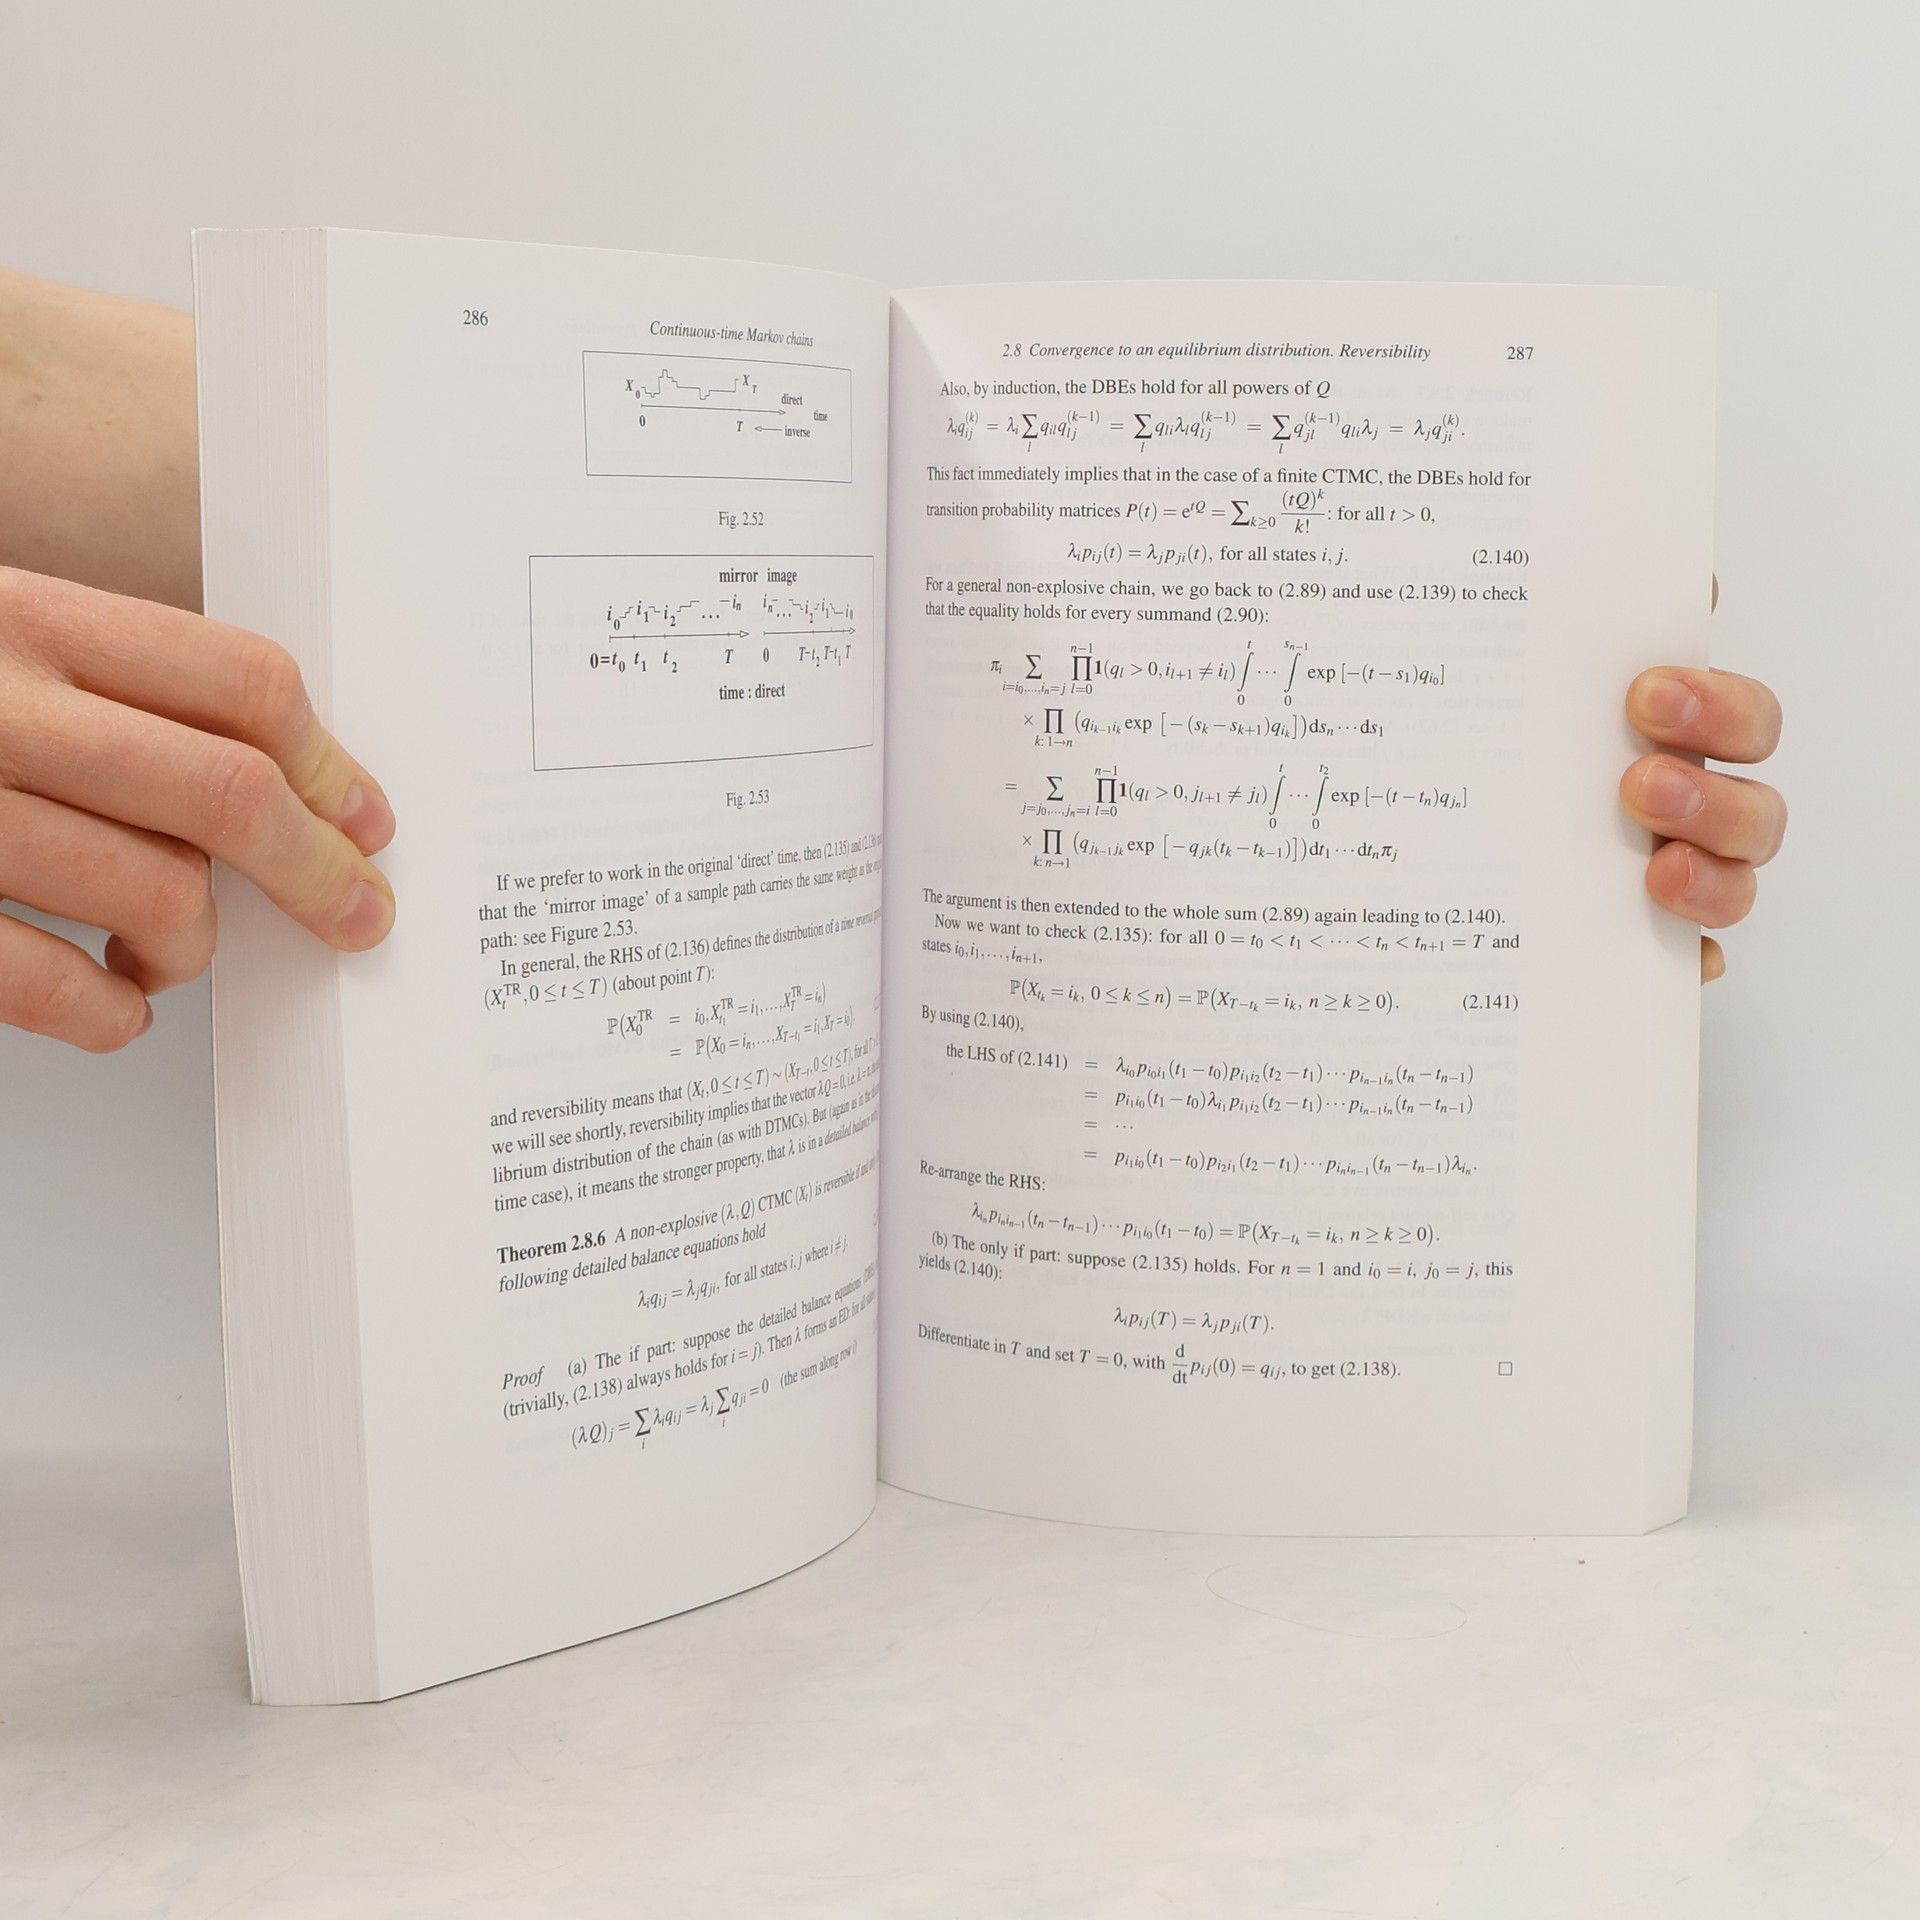 286
Continuous-time Markov chains
X₀ X_T
direct
time
0 T ← inverse
Fig. 2.52
mirror image
i₀ i₁ i₂ ... iₙ iₙ ... i₂ i₁ i₀
0=t₀ t₁ t₂ T 0 T-t₂ T-t₁ T
time : direct
Fig. 2.53
If we prefer to work in the original ‘direct’ time, then (2.135) and (2.136)
that the ‘mirror image’ of a sample path carries the same weight as the
path: see Figure 2.53.
In general, the RHS of (2.136) defines the distribution of a time reversal
(X_t^{TR}, 0 ≤ t ≤ T) (about point T):
ℙ(X_0^{TR} = i₀, X_{t₁}^{TR} = i₁, …, X_T^{TR} = iₙ)
= ℙ(X₀ = iₙ, …, X_{T−t₁} = i₁, X_T = i₀),
and reversibility means that (X_t, 0 ≤ t ≤ T) ∼ (X_{T−t}, 0 ≤ t ≤ T), for all T
we will see shortly, reversibility implies that the vector λQ = 0, i.e. λ = π,
librium distribution of the chain (as with DTMCs). But (again as in the
time case), it means the stronger property, that λ is in a detailed balance
Theorem 2.8.6 A non-explosive (λ, Q) CTMC (X_t) is reversible if and
following detailed balance equations hold
λ_i q_{ij} = λ_j q_{ji}, for all states i, j where i ≠ j.
Proof (a) The if part: suppose the detailed balance equations
(trivially, (2.138) always holds for i = j). Then λ forms an ED: for all
(λQ)_j = ∑_i λ_i q_{ij} = λ_j ∑_i q_{ji} = 0 (the sum along row i)
2.8 Convergence to an equilibrium distribution. Reversibility 287
Also, by induction, the DBEs hold for all powers of Q
λ_i q_{ij}^{(k)} = λ_i ∑_l q_{il} q_{lj}^{(k−1)} = ∑_l q_{li} λ_l q_{lj}^{(k−1)} = ∑_l q_{jl}^{(k−1)} q_{li} λ_j = λ_j q_{ji}^{(k)}.
This fact immediately implies that in the case of a finite CTMC, the DBEs hold for
transition probability matrices P(t) = e^{tQ} = ∑_{k≥0} (tQ)^k / k! : for all t > 0,
λ_i p_{ij}(t) = λ_j p_{ji}(t), for all states i, j. (2.140)
For a general non-explosive chain, we go back to (2.89) and use (2.139) to check
that the equality holds for every summand (2.90):
π_i ∑_{i=i₀,…,iₙ=j} ∏_{l=0}^{n−1} 1(q_l > 0, i_{l+1} ≠ i_l) ∫_0^t ⋯ ∫_0^{s_{n−1}} exp [−(t − s₁)q_{i₀}]
× ∏_{k: 1→n} (q_{i_{k−1}i_k} exp [−(s_k − s_{k+1})q_{i_k}]) dsₙ ⋯ ds₁
= ∑_{j=j₀,…,jₙ=i} ∏_{l=0}^{n−1} 1(q_l > 0, j_{l+1} ≠ j_l) ∫_0^t ⋯ ∫_0^{t₂} exp [−(t − tₙ)q_{jₙ}]
× ∏_{k: n→1} (q_{j_{k−1}j_k} exp [−q_{jk}(t_k − t_{k−1})]) dt₁ ⋯ dtₙ π_j
The argument is then extended to the whole sum (2.89) again leading to (2.140).
Now we want to check (2.135): for all 0 = t₀ < t₁ < ⋯ < tₙ < t_{n+1} = T and
states i₀, i₁, …, i_{n+1},
ℙ(X_{t_k} = i_k, 0 ≤ k ≤ n) = ℙ(X_{T−t_k} = i_k, n ≥ k ≥ 0). (2.141)
By using (2.140),
the LHS of (2.141) = λ_{i₀} p_{i₀i₁}(t₁ − t₀) p_{i₁i₂}(t₂ − t₁) ⋯ p_{i_{n−1}i_n}(tₙ − t_{n−1})
= p_{i₁i₀}(t₁ − t₀) λ_{i₁} p_{i₁i₂}(t₂ − t₁) ⋯ p_{i_{n−1}i_n}(tₙ − t_{n−1})
= ⋯
= p_{i₁i₀}(t₁ − t₀) p_{i₂i₁}(t₂ − t₁) ⋯ p_{i_n i_{n−1}}(tₙ − t_{n−1}) λ_{i_n}.
Re-arrange the RHS:
λ_{i_n} p_{i_n i_{n−1}}(tₙ − t_{n−1}) ⋯ p_{i₁i₀}(t₁ − t₀) = ℙ(X_{T−t_k} = i_k, n ≥ k ≥ 0).
(b) The only if part: suppose (2.135) holds. For n = 1 and i₀ = i, j₀ = j, this
yields (2.140):
λ_i p_{ij}(T) = λ_j p_{ji}(T).
Differentiate in T and set T = 0, with d/dt p_{ij}(0) = q_{ij}, to get (2.138). □